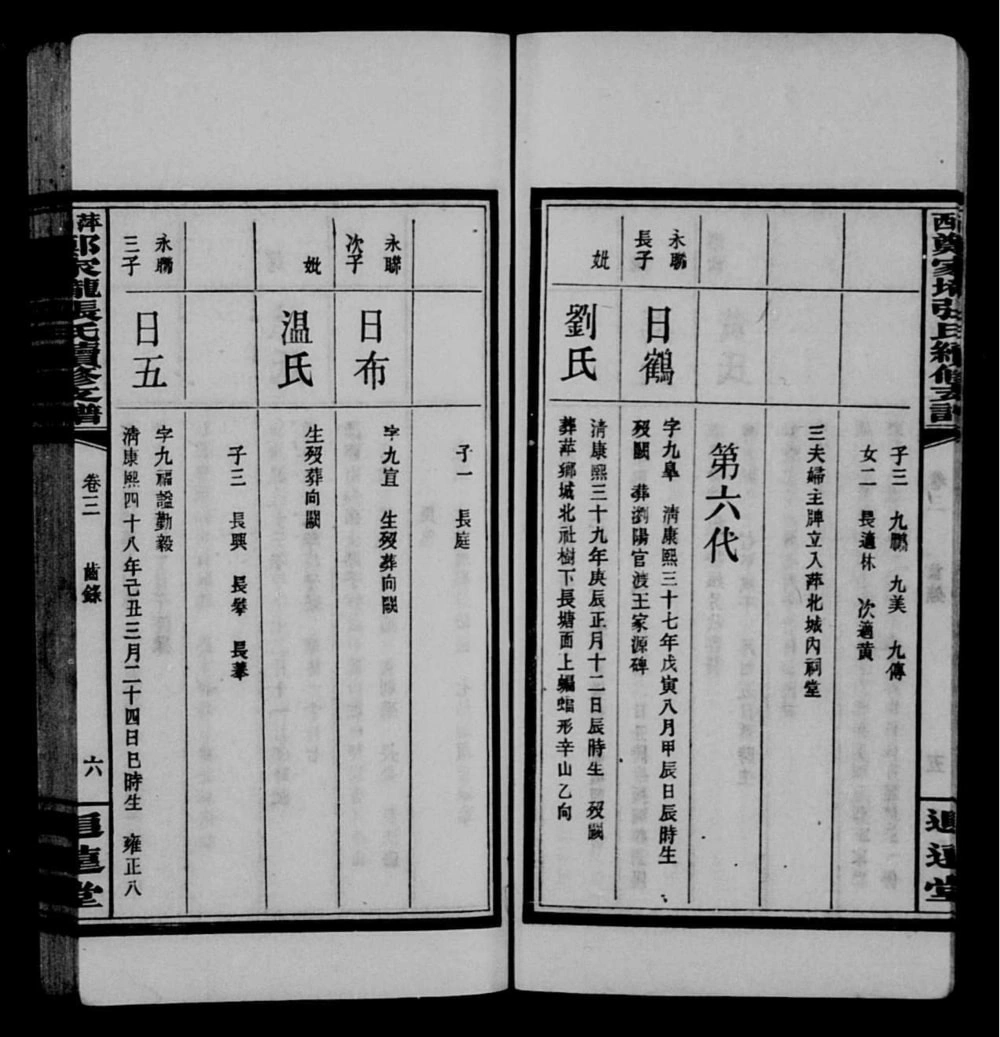 子三 九鵬 九美 九傳
女二 長適林 次適黃
三夫婦主牌立入萍北城內祠堂
第六代
永聯
長子
日鶴
字九臯 清康熙三十七年戊寅八月甲辰日辰時生
歿闕 葬瀏陽官渡王家源碑
妣
劉氏
清康熙三十九年庚辰正月十二日辰時生 歿闕
葬萍鄉城北社樹下長塘面上蝙蝠形辛山乙向
子一 長庭
永聯
次子
日布
字九宣 生歿葬向闕
妣
温氏
生歿葬向闕
子三 長興 長攀 長摹
永聯
三子
日五
字九福謚勤毅
清康熙四十八年己丑三月二十四日巳時生 雍正八
張氏續修支譜
卷三
齒錄
六
堂